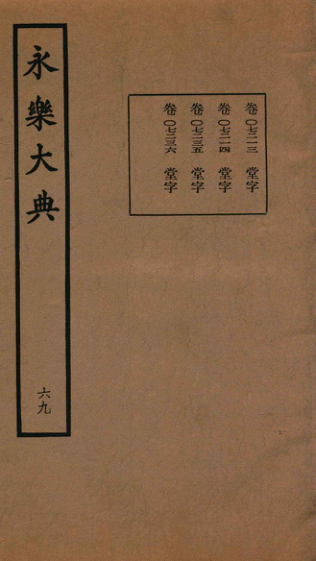 永樂大典
六九
卷〇七二一三 堂字
卷〇七二一四 堂字
卷〇七二三五 堂字
卷〇七二三六 堂字